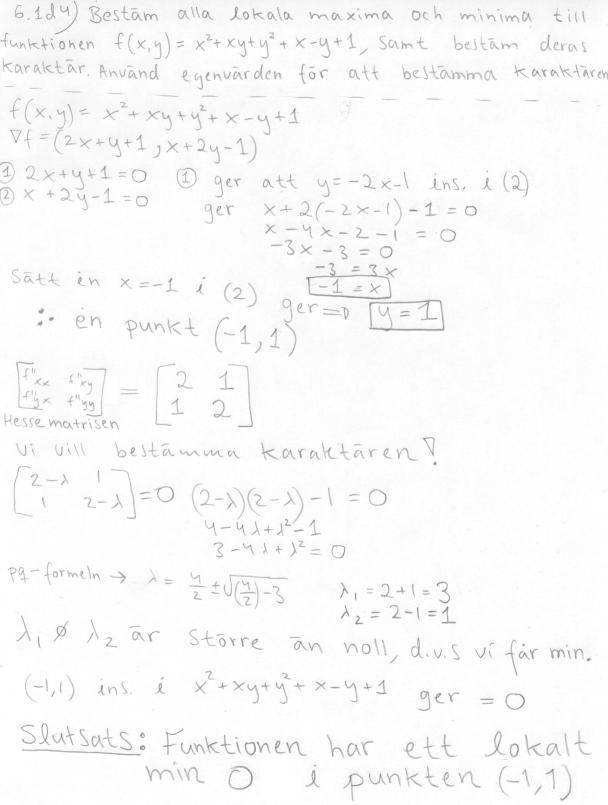 6.1d4) Bestäm alla lokala maxima och minima till
funktionen f(x,y) = x²+xy+y²+x-y+1, samt bestäm deras
karaktär. Använd egenvärden för att bestämma karaktären
f(x,y) = x²+xy+y²+x-y+1
∇f = (2x+y+1, x+2y-1)
① 2x+y+1=0
② x+2y-1=0
① ger att y=-2x-1 ins. i (2)
ger x+2(-2x-1)-1=0
x-4x-2-1=0
-3x-3=0
-3=3x
-1=x
Sätt in x=-1 i (2) ger ⇒ y=1
∴ en punkt (-1,1)
[f''xx f''xy
f''yx f''yy] = [2 1
1 2]
Hessematrisen
Vi vill bestämma karaktären!
[2-λ 1
1 2-λ] = 0 (2-λ)(2-λ)-1=0
4-4λ+λ²-1
3-4λ+λ²=0
pq-formeln → λ = 4/2 ± √((4/2)-3)
λ₁=2+1=3
λ₂=2-1=1
λ₁ λ₂ är större än noll, d.v.s vi får min.
(-1,1) ins. i x²+xy+y²+x-y+1 ger =0
Slutsats: Funktionen har ett lokalt
min 0 i punkten (-1,1)